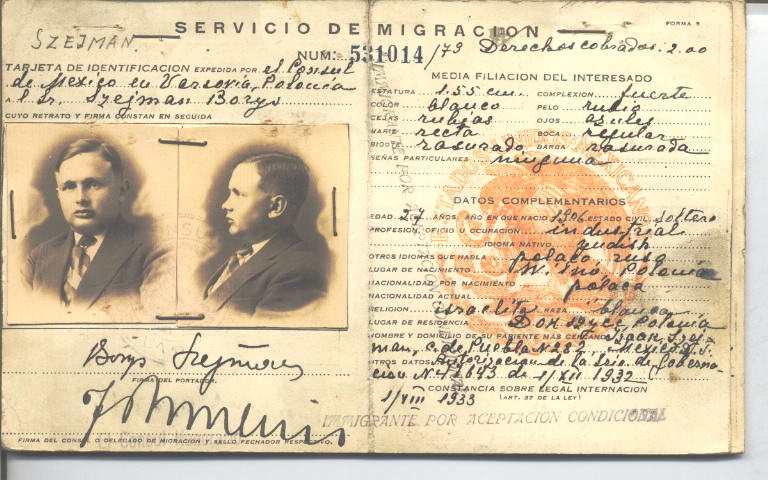 SERVICIO DE MIGRACION
FORMA 5
SZEJMAN.
NUM: 531014/73 Derechos cobrados. 2.00
TARJETA DE IDENTIFICACION EXPEDIDA POR el Consul
de Mexico en Varsovia, Polonia
a l Sr. Szejman Borys
CUYO RETRATO Y FIRMA CONSTAN EN SEGUIDA
Borys Szejman
FIRMA DEL PORTADOR.
FIRMA DEL CONSUL O DELEGADO DE MIGRACION Y SELLO FECHADOR RESPECTIVO.
MEDIA FILIACION DEL INTERESADO
ESTATURA 1.55 cm. COMPLEXION fuerte
COLOR blanco PELO rubio
CEJAS rubias OJOS azules
NARIZ recta BOCA regular
BIGOTE rasurado BARBA rasurada
SEÑAS PARTICULARES ninguna
ESTADOS UNIDOS MEXICANOS
DATOS COMPLEMENTARIOS
EDAD 27 AÑOS AÑO EN QUE NACIO 1906 ESTADO CIVIL soltero
PROFESION, OFICIO U OCUPACION industrial
IDIOMA NATIVO yudish
OTROS IDIOMAS QUE HABLA polaco, ruso
LUGAR DE NACIMIENTO Polonia
NACIONALIDAD POR NACIMIENTO polaca
NACIONALIDAD ACTUAL
RELIGION israelita RAZA blanca
LUGAR DE RESIDENCIA Polonia
NOMBRE Y DOMICILIO DE SU PARIENTE MAS CERCANO Isaac Szej-
man, C. de Puebla N. 287 Mexico
OTROS DATOS Autorizacion de la Sria. de Goberna-
cion N. 42643 de 1/XII 1932
CONSTANCIA SOBRE LEGAL INTERNACION
(ART. 37 DE LA LEY)
1/VIII 1933
INMIGRANTE POR ACEPTACION CONDICIONAL